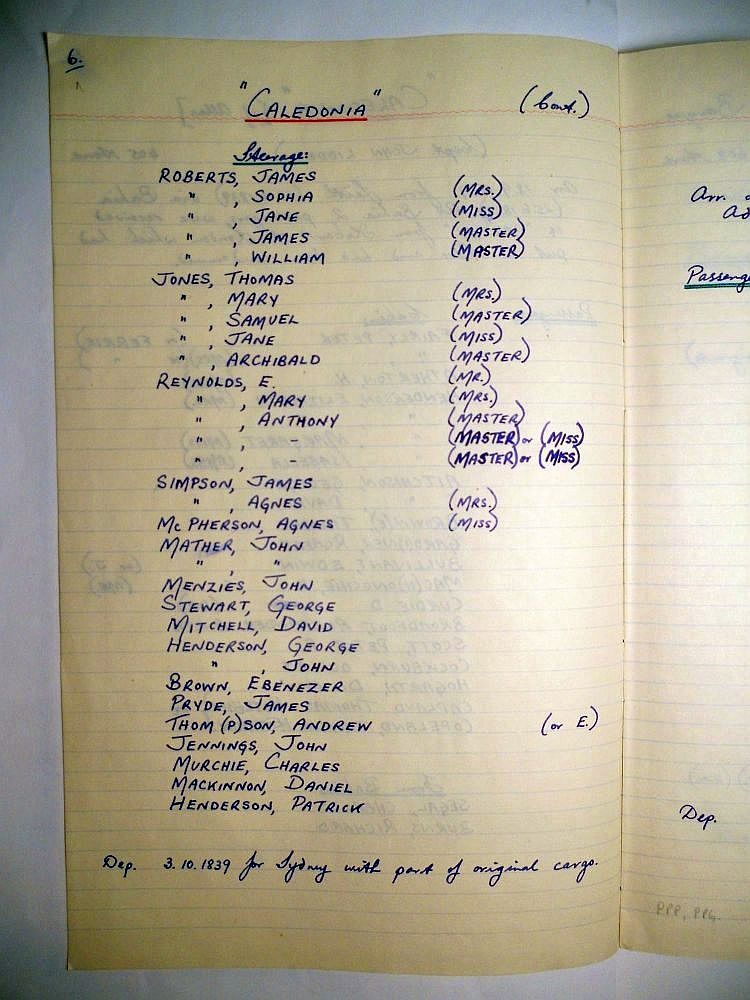 6.
"CALEDONIA" (Cont.)
Steerage:
ROBERTS, JAMES
" , SOPHIA (MRS.)
" , JANE (MISS)
" , JAMES (MASTER)
" , WILLIAM (MASTER)
JONES, THOMAS
" , MARY (MRS.)
" , SAMUEL (MASTER)
" , JANE (MISS)
" , ARCHIBALD (MASTER)
REYNOLDS, E. (MR.)
" , MARY (MRS.)
" , ANTHONY (MASTER)
" , - (MASTER) or (MISS)
" , - (MASTER) or (MISS)
SIMPSON, JAMES
" , AGNES (MRS.)
McPHERSON, AGNES (MISS)
MATHER, JOHN
" , "
MENZIES, JOHN
STEWART, GEORGE
MITCHELL, DAVID
HENDERSON, GEORGE
" , JOHN
BROWN, EBENEZER
PRYDE, JAMES
THOM(P)SON, ANDREW (or E.)
JENNINGS, JOHN
MURCHIE, CHARLES
MACKINNON, DANIEL
HENDERSON, PATRICK
Dep. 3.10.1839 for Sydney with part of original cargo.
Arr.
Ad
Passeng
Dep.
PPP, PPG.